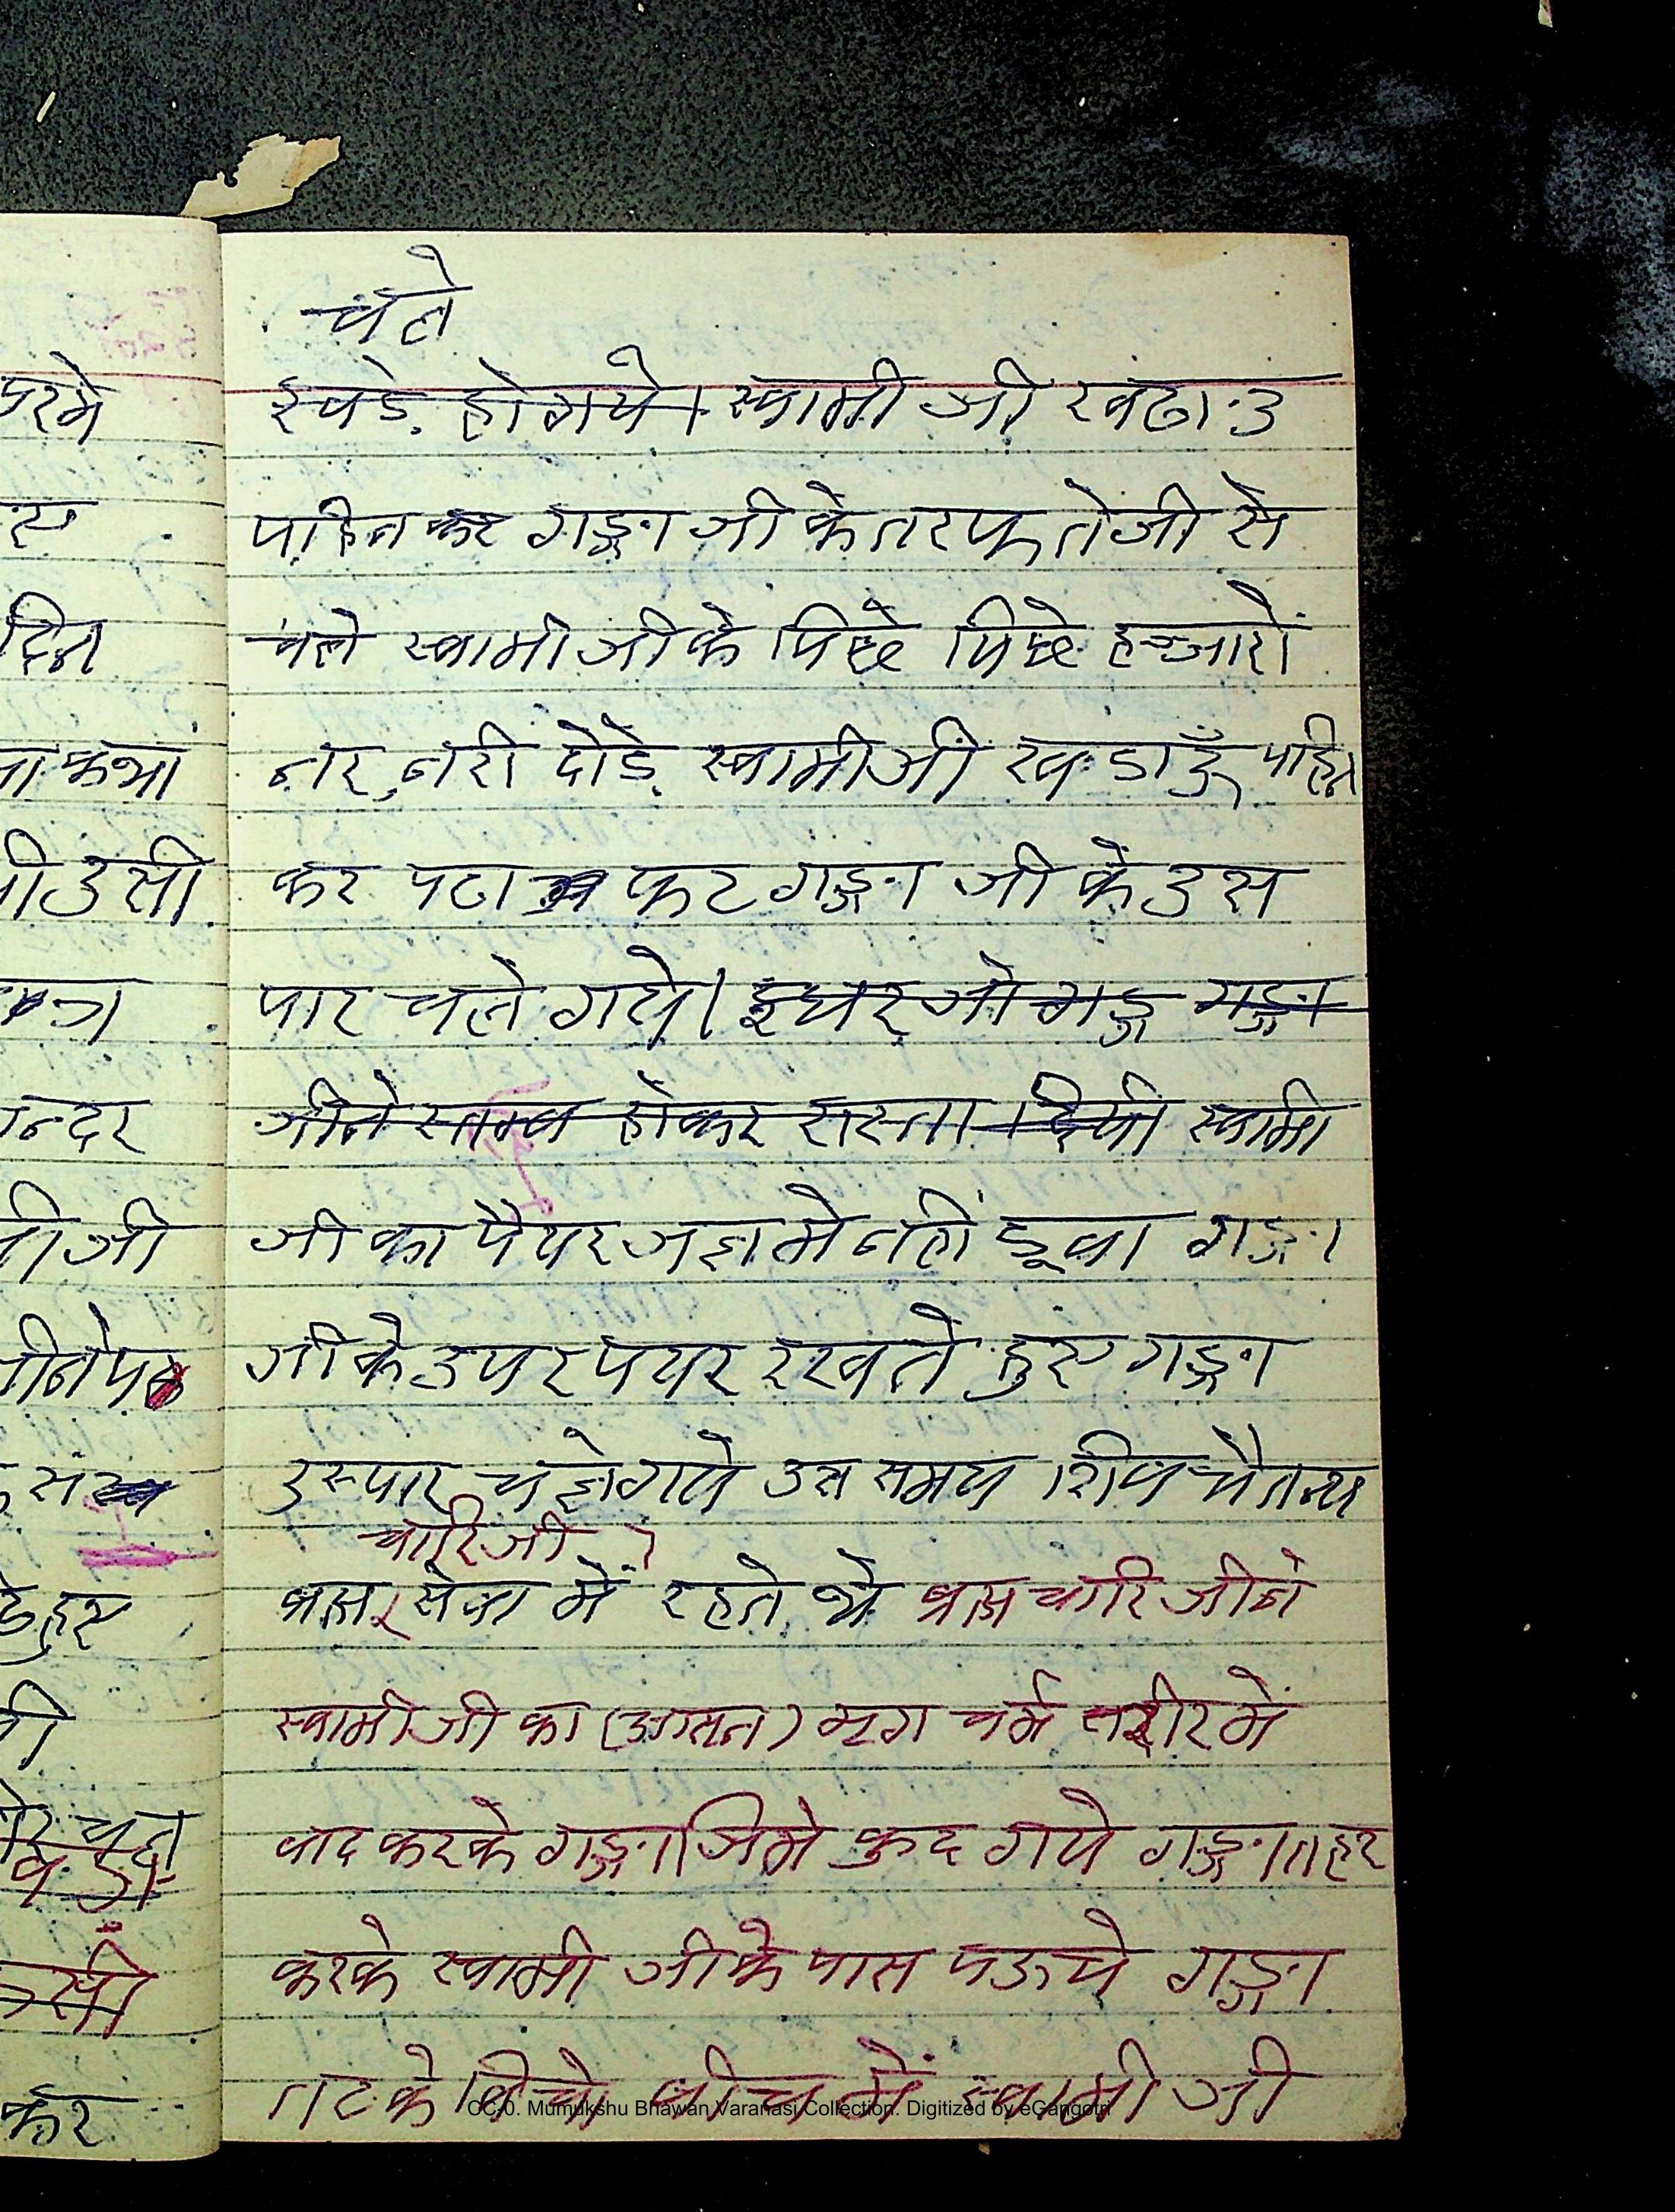 चले
खडे होगये। स्वामी जी खढाउ
पहिन कर गङ्गा जी के तरफ तेजी से
चले स्वामी जी के पिछे पिछे हज्जारों
नर, नरी दौडे स्वामीजी खडाऊँ पहिन
कर पटा फट गङ्गा जी के उस
पार चले गये। इधर जो गङ्ग गङ्गा
जीने स्तम्ब होकर रास्ता दियी स्वामी
जी का पैयर जल मे नहीं डूवा गङ्गा
जी के उपर पयर रखते हुए गङ्गा
उस्पार चलेगये उस समय शिव चैतन्य
चारि जी
ब्रह्म सेवा में रहते थे ब्रह्म चारि जीने
स्वामी जी का (आसन) मृग चर्म शरीर में
वाद करके गङ्गाजिमे कुद गये गङ्गा तहर
करके स्वामी जी के पास पऊचे गङ्गा
तट के वीच में स्वामी जी
परमे
दिन
कथा
उसी
न्दर
जी
जीने
हुए
कर
CC-0. Mumukshu Bhawan Varanasi Collection. Digitized by eGangotri